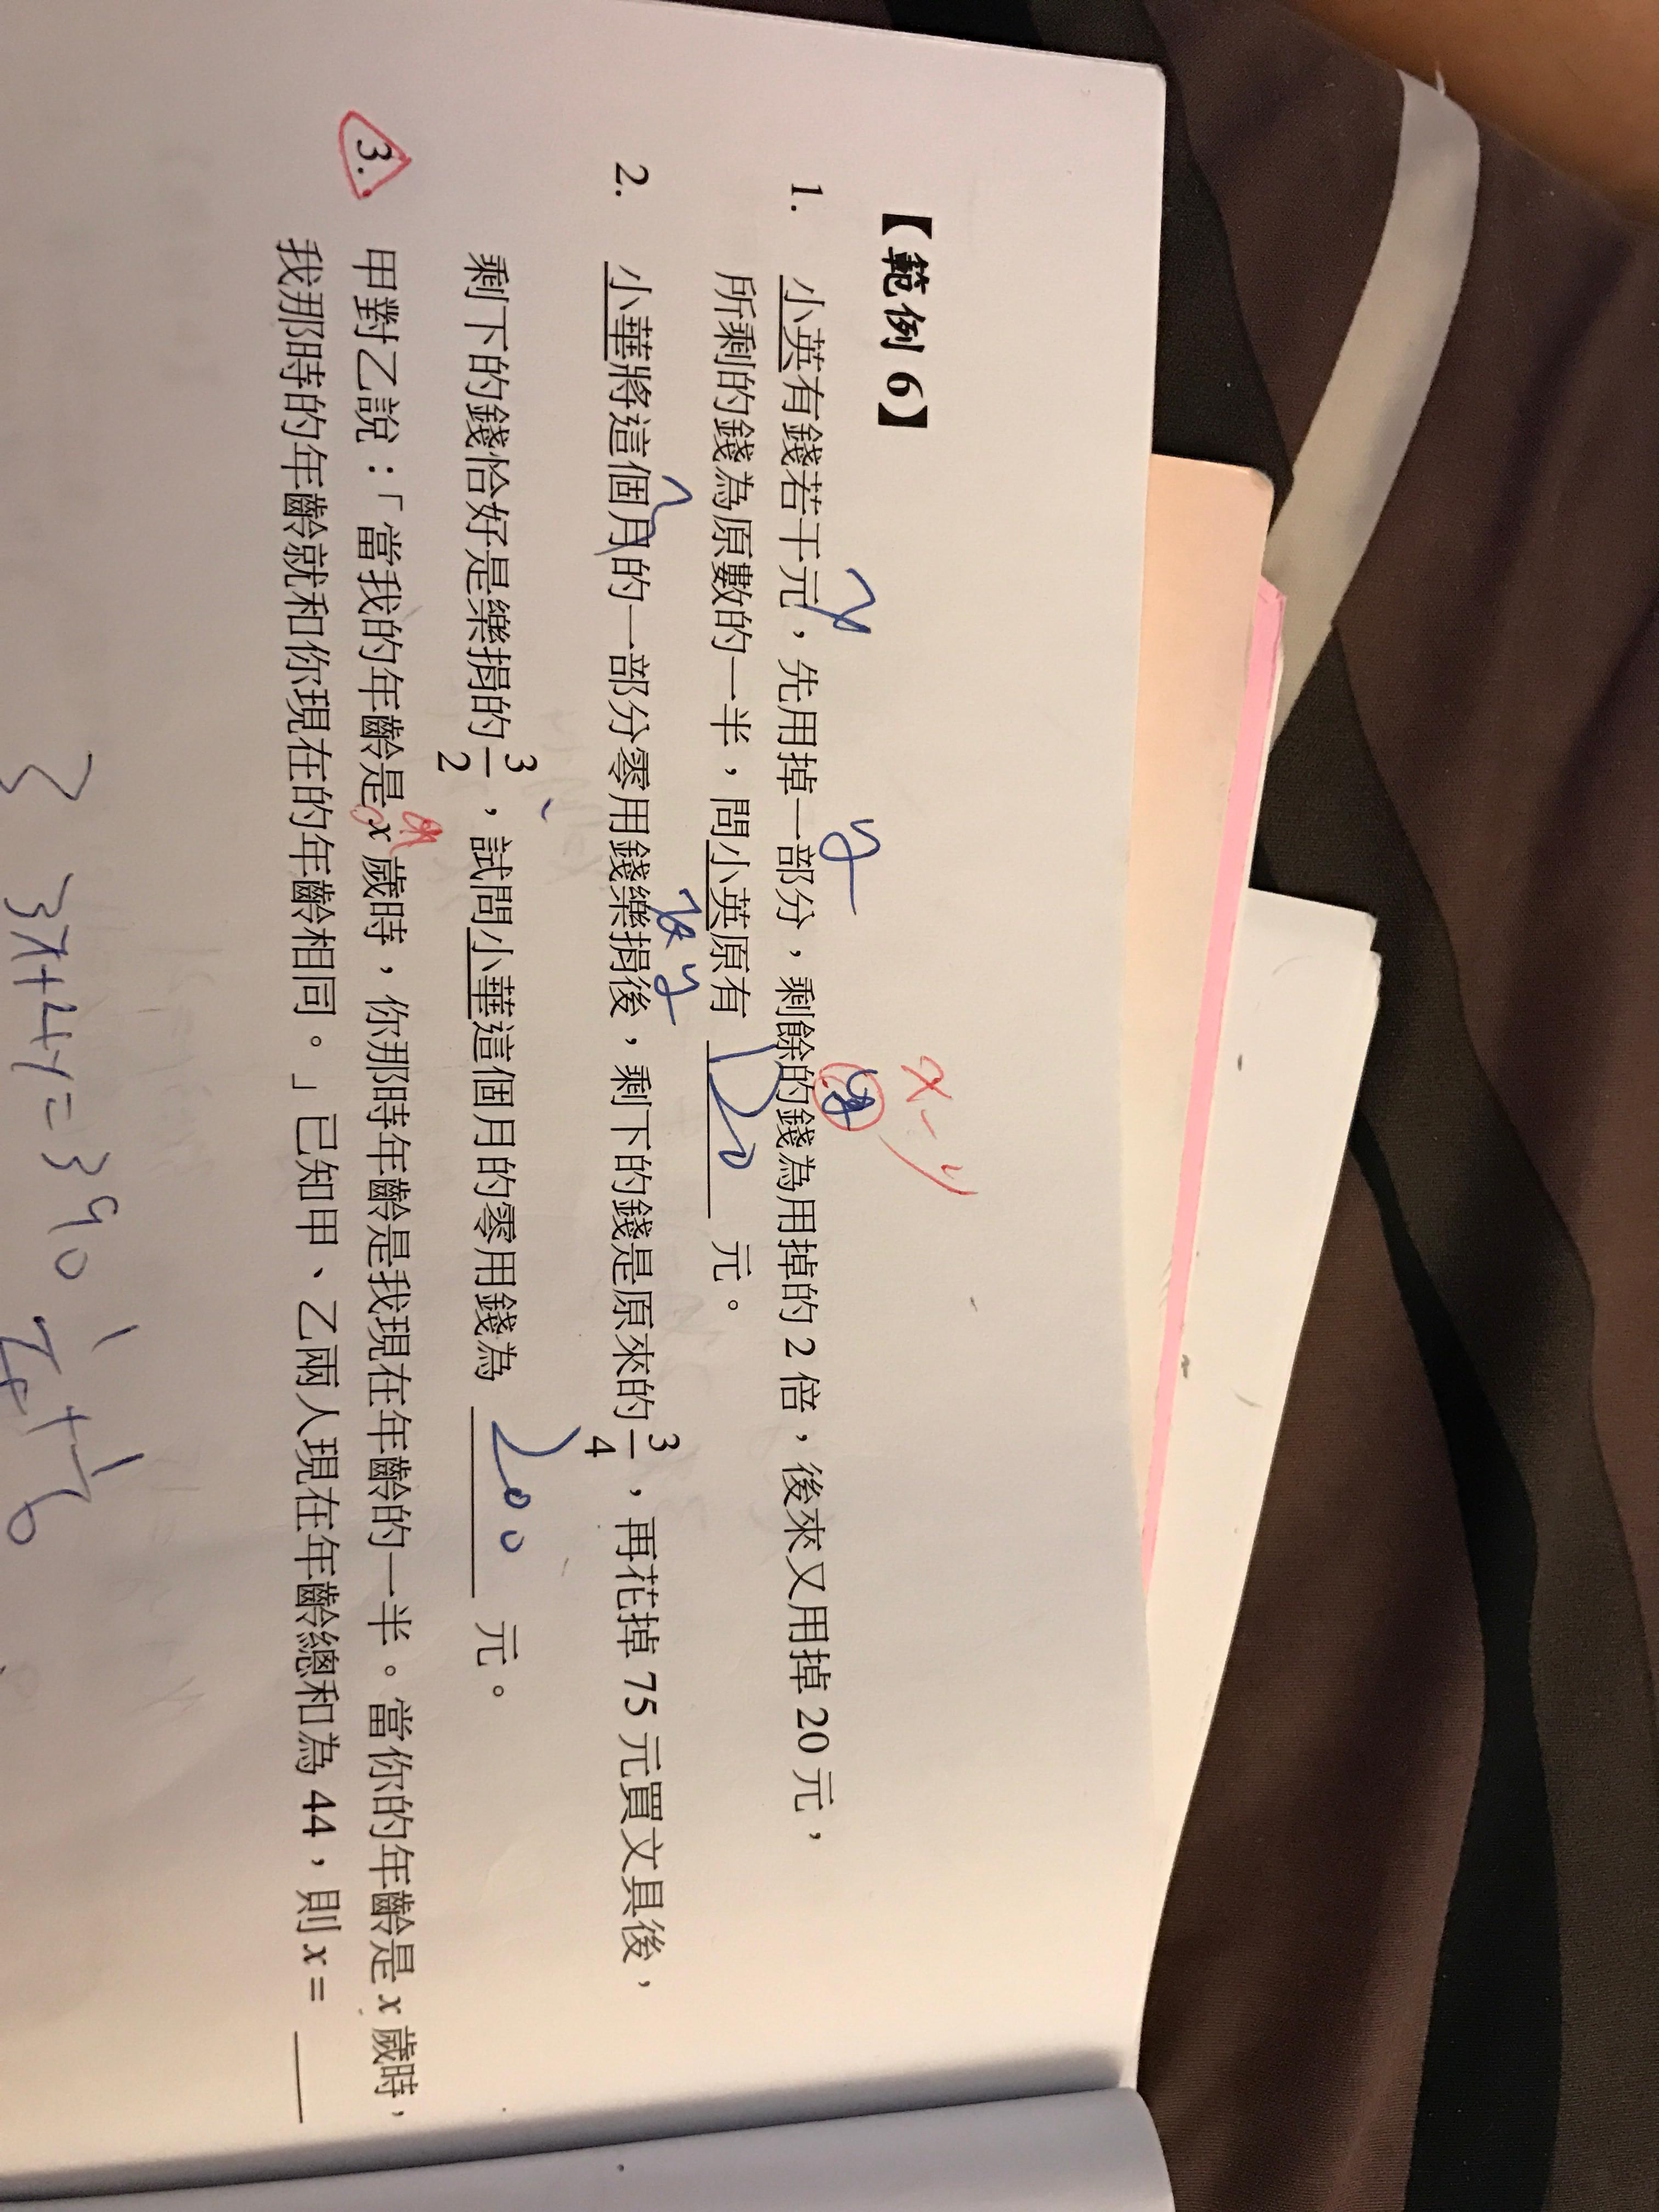 【範例 6】
x-y
x y y
1. 小英有錢若干元，先用掉一部分，剩餘的錢為用掉的 2 倍，後來又用掉 20 元，
所剩的錢為原數的一半，問小英原有 120 元。
x y
2. 小華將這個月的一部分零用錢樂捐後，剩下的錢是原來的 3/4，再花掉 75 元買文具後，
剩下的錢恰好是樂捐的 3/2，試問小華這個月的零用錢為 200 元。
3. 甲對乙說：「當我的年齡是 x 歲時，你那時年齡是我現在年齡的一半。當你的年齡是 x 歲時，
我那時的年齡就和你現在的年齡相同。」已知甲、乙兩人現在年齡總和為 44，則 x =
3x+4y=390